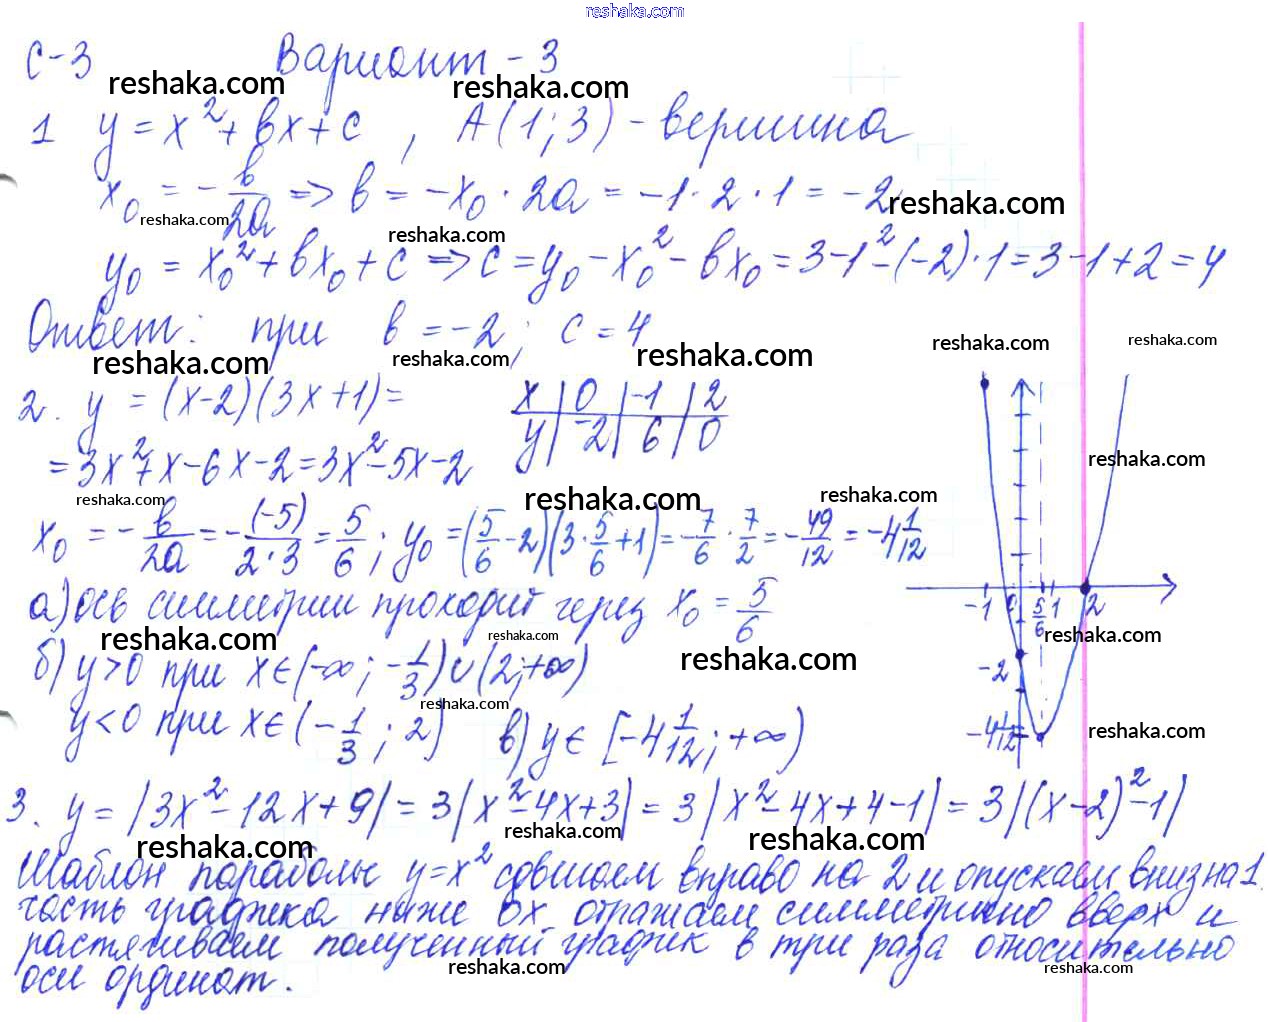 reshaka.com
С-3 Вариант - 3
reshaka.com reshaka.com
1 y = x² + bx + c , A(1; 3) - вершина
x₀ = - b/2a => b = -x₀ · 2a = -1 · 2 · 1 = -2
reshaka.com reshaka.com reshaka.com
y₀ = x₀² + bx₀ + c => c = y₀ - x₀² - bx₀ = 3 - 1² - (-2) · 1 = 3 - 1 + 2 = 4
Ответ: при b = -2; c = 4
reshaka.com reshaka.com reshaka.com reshaka.com reshaka.com
2. y = (x-2)(3x+1) =
x | 0 | -1 | 2
y | -2 | 6 | 0
= 3x² + x - 6x - 2 = 3x² - 5x - 2
reshaka.com reshaka.com reshaka.com reshaka.com
x₀ = - b/2a = - (-5)/2·3 = 5/6 ; y₀ = (5/6 - 2)(3 · 5/6 + 1) = - 7/6 · 7/2 = - 49/12 = -4 1/12
а) ось симметрии проходит через x₀ = 5/6
-1 0 5/6 1 2
reshaka.com reshaka.com reshaka.com reshaka.com
б) y > 0 при x ∈ (-∞; -1/3) ∪ (2; +∞)
-2
y < 0 при x ∈ (-1/3 ; 2) в) y ∈ [-4 1/12; +∞)
-4 1/12
reshaka.com reshaka.com
3. y = |3x² - 12x + 9| = 3|x² - 4x + 3| = 3|x² - 4x + 4 - 1| = 3|(x-2)² - 1|
reshaka.com reshaka.com reshaka.com
Шаблон параболы y = x² сдвигаем вправо на 2 и опускаем вниз на 1.
часть графика ниже Ox отражаем симметрично вверх и
растягиваем полученный график в три раза относительно
оси ординат.
reshaka.com reshaka.com